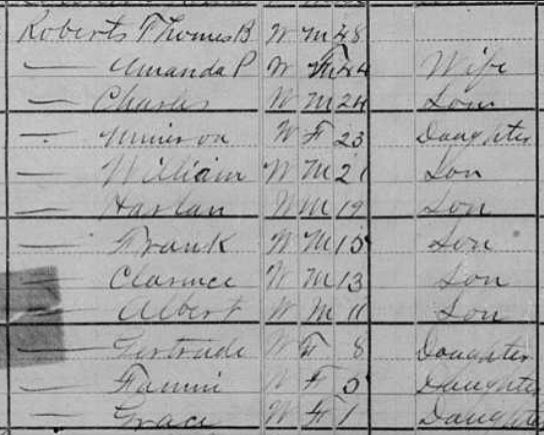 Roberts Thomas B W M 48
— Amanda P W F 44 Wife
— Charles W M 24 Son
— Minerva W F 23 Daughter
— William W M 21 Son
— Harlan W M 19 Son
— Frank W M 15 Son
— Clarence W M 13 Son
— Albert W M 11 Son
— Gertrude W F 8 Daughter
— Fannie W F 5 Daughter
— Grace W F 1 Daughter